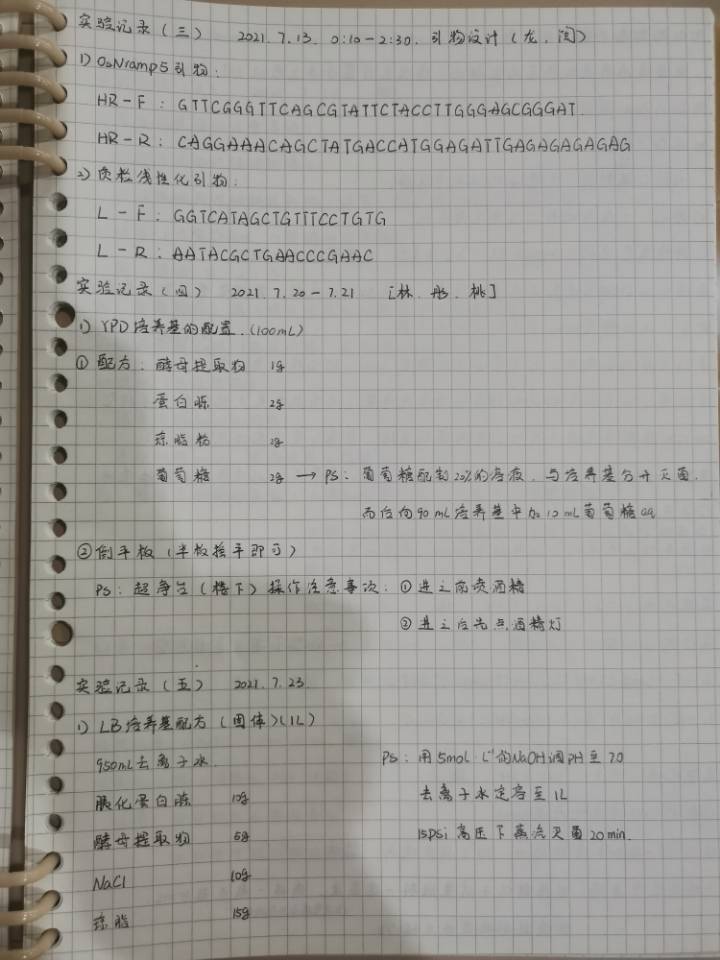 实验记录（三） 2021.7.13. 0:10-2:30. 引物设计（龙、闫）
1) OsNramp5引物：
HR-F：GTTCGGGTTCAGCGTATTCTACCTTGGGAGCGGGAT
HR-R：CAGGAAACAGCTATGACCATGGAGATTGAGAGAGAGAG
2) 质粒线性化引物：
L-F：GGTCATAGCTGTTTCCTGTG
L-R：AATACGCTGAACCCGAAC
实验记录（四） 2021.7.20-7.21 [林、彤、桃]
1) YPD培养基的配置.(100mL)
① 配方：酵母提取物 1g
蛋白胨 2g
琼脂粉 2g
葡萄糖 2g → PS：葡萄糖配制20%的溶液，与培养基分开灭菌，
而后向90mL培养基中加10mL葡萄糖aq
② 倒平板（半板摇平即可）
PS：超净台（楼下）操作注意事项：① 进之前喷酒精
② 进之后先点酒精灯
实验记录（五） 2021.7.23.
1) LB培养基配方（固体）(1L)
950mL去离子水 PS：用5mol·L⁻¹的NaOH调pH至7.0
胰化蛋白胨 10g 去离子水定容至1L
酵母提取物 5g 15psi高压下蒸汽灭菌20min.
NaCl 10g
琼脂 15g